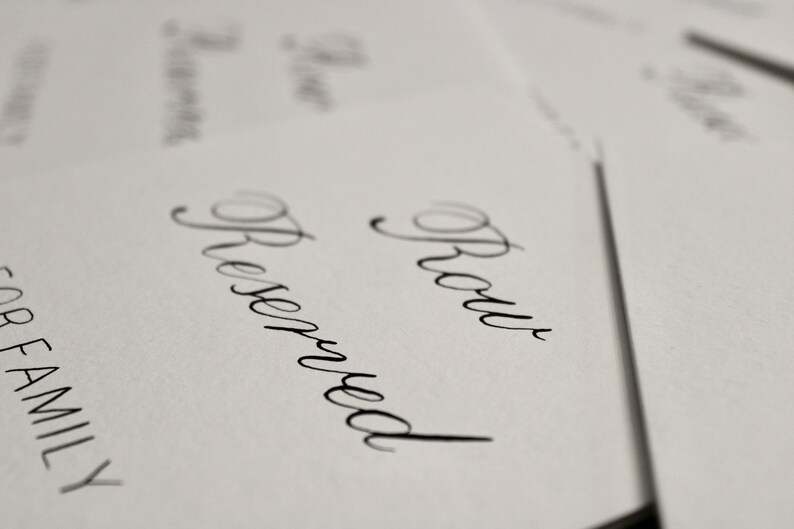 Row
Reserved
FOR FAMILY
Row
Reserved
Row